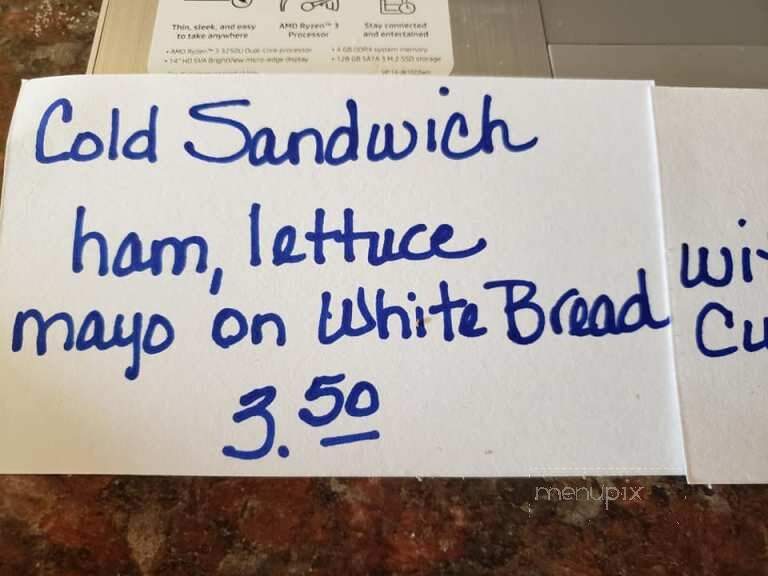 Thin, sleek, and easy
to take anywhere
AMD Ryzen™ 3
Processor
Stay connected
and entertained
• AMD Ryzen™ 3 3250U Dual-Core processor
• 14" HD SVA BrightView micro-edge display
• 4 GB DDR4 system memory
• 128 GB SATA 3 M.2 SSD storage
Cold Sandwich
ham, lettuce
mayo on White Bread
3.50
menupix